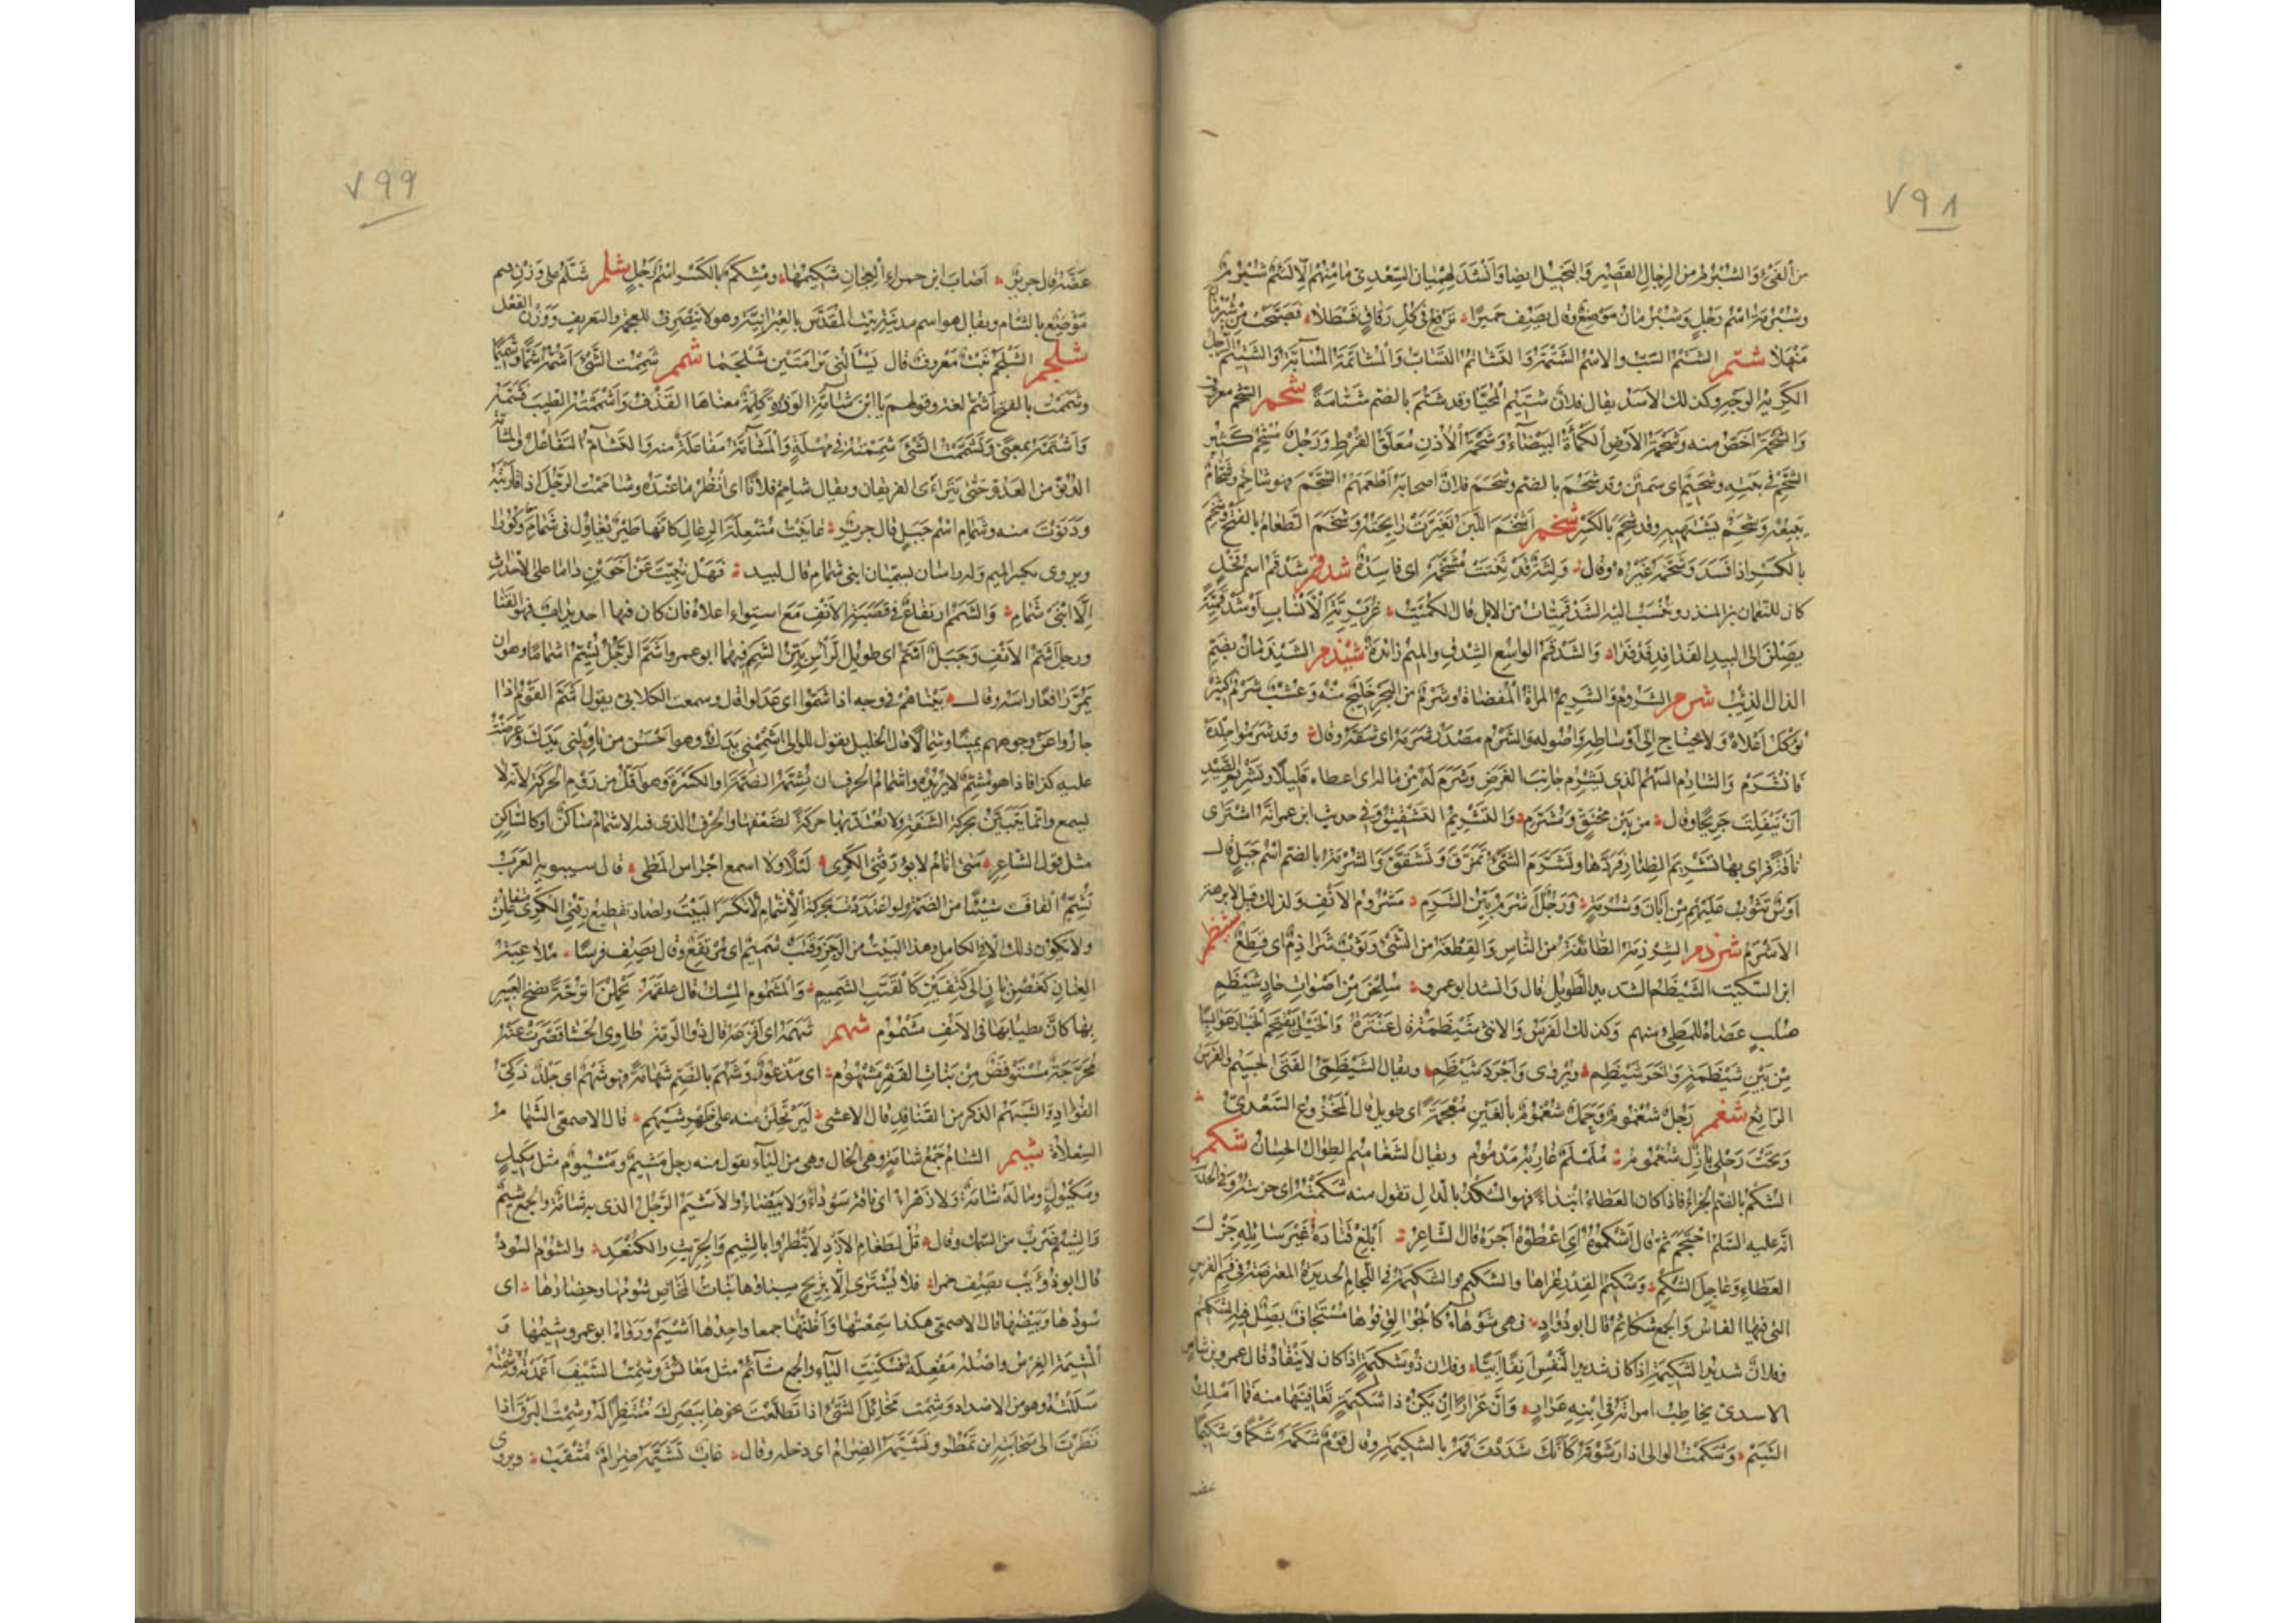 ٧٩٨
من الفئ والشبرم من الرجال القصير والبخيل ايضا وانشد لهميان السعدى ما منهم الا لئيم شبرم
وشبرمة اسم رجل وشبرمان موضع وقال يصف حميرا ترفع فى كل رقاق قسطلا فصبحت من شبرمان
منهلا شتم الشتم السب والاسم الشتيمة والتشاتم التساب والمشاتمة المسابة والشتيم الرجل
الكريه الوجه وكذلك الاسد يقال فلان شتيم المحيا وقد شتم بالضم شتامة شحم الشحم معروف
والشحمة اخص منه وشحمة الارض الكمأة البيضاء وشحمة الاذن معلق القرط ورجل مشحم كثير
الشحم فى بيته وشحيم اى سمين وقد شحم بالضم وشحم فلان اصحابه اطعمهم الشحم فهو شاحم وشحام
يبيعه وشحم يشتهيه وقد شحم بالكسر شخم اشخم اللبن تغيرت رايحته وشخم الطعام بالفتح وشخم
بالكسر اذا فسد وشخمه غيره وقال ولثة قد نتنت مشخمه اى فاسدة شدقم شدقم اسم فحل
كان للنعمان بن المنذر وينسب اليه الشدقميات من الابل قال الكميت غريرية الانساب او شدقمية
يصلن الى البيد الفدافد فدفدا والشدقم الواسع الشدق والميم زائدة شيذم الشيذمان بضم
الذال الذئب شرم الشروم والشريم المراة المفضاة وشرم من البحر خليج منه وعشب شرم كثير
يؤكل اعلاه ولا يحتاج الى اوساطه واصوله والشرم مصدر شرمه اى شقه وقال وقد شرموا جلده
فانشرم والشارم السهم الذى يشرم جانب الغرض وشرم له من ماله اى اعطاه قليلا وتشريم الصيد
ان ينفلت جريحا وقال من بين محتق ومشرم والتشريم التشقيق وفى حديث ابن عمر انه اشترى
ناقة فراى بها تشريم الظئار فردها وتشرم الشئ تمزق وتشقق والشرمة بالضم اسم جبل قال
اوس تثوب عليهم من ابان وشرمة ورجل اشرم بين الشرم مشروم الانف ولذلك قيل لابرهة
الاشرم شرذم الشرذمة الطائفة من الناس والقطعة من الشئ وثوب شراذم اى قطع شظم
ابن السكيت الشيظم الشديد الطويل قال وانشد ابو عمرو يلحن من اصوات حاد شيظم
صلب عصاه للمطى منهم وكذلك الفرس والانثى شيظمة قال عنترة والخيل تقتحم الخبار عوابسا
من بين شيظمة واخر شيظم ويروى واجرد شيظم ويقال الشيظمى الفتى الجسيم والفرس
الرائع شغم رجل شغموم وجمل شغموم بالغين معجمة اى طويل قال المخزوع السعدى
وتحت رحلى بازل شغموم ململم غاربه مدموم ويقال الشغاميم الطوال الحسان شكم
الشكم بالضم الجزاء فاذا كان العطاء ابتداء فهو الشكد بالدال تقول منه شكمته اى جزيته وفى الحديث
انه عليه السلم احتجم ثم قال اشكموه اى اعطوه اجره قال الشاعر ابلغ قتادة غير سائله جزل
العطاء وعاجل الشكم وشكيم القدر عراها والشكيم والشكيمة فى اللجام الحديدة المعترضة فى فم الفرس
التى فيها الفاس والجمع شكائم قال ابو دواد فهى شوهاء كالجوالق فوها مستجاف يضل فيه الشكيم
وفلان شديد الشكيمة اذا كان شديد النفس انفا ابيا وفلان ذو شكيمة اذا كان لا ينقاد قال عمرو بن شاس
الاسدى يخاطب امراته فى ابنه عرار وان عرارا ان يكن ذا شكيمة تعافينها منه فما املك
الشيم وشكمت الوالى اذا رشوته كانك شددت فمه بالشكيمة وقال قوم شكمه شكما وشكيما
عضه
٧٩٩
عضه قال جرير اصاب ابن حمراء العجان شكيمها ومشكم بالكسر اسم رجل شلم شلم على وزن بقم
موضع بالشام ويقال هو اسم مدينة بيت المقدس بالعبرانية وهو لا ينصرف للعجمة والتعريف ووزن الفعل
شلجم الشلجم نبت معروف قال يسالنى برامتين شلجما شمم شممت الشئ اشمه شما وشميما
وشممت بالفتح اشم لغة وقولهم يا ابن شامة الوذرة كلمة معناها القذف واشممته الطيب فشمه
واشتمه بمعنى وتشممت الشئ شممته فى مهلة والمشامة مفاعلة منه والتشام التفاعل والمشامة
الدنو من العدو حتى يتراءى الفريقان ويقال شامم فلانا اى انظر ما عنده وشاممت الرجل اذا قاربته
ودنوت منه وشمام اسم جبل قال جرير عاينت مشعلة الرعال كانها طير يغاول فى شمام وكورا
ويروى بكسر الميم وله راسان يسميان ابنى شمام قال لبيد فهل نبئت عن اخوين داما على الاحداث
الا ابنى شمام والشمم ارتفاع فى قصبة الانف مع استواء اعلاه فان كان فيها احديداب فهو القنا
ورجل اشم الانف وجبل اشم اى طويل الراس بين الشمم فيهما ابو عمرو واشم الرجل يشم اشماما وهو ان
يمر رافعا راسه وقال بيناهم فى وجه اذا شموا اى عدلوا قال وسمعت الكلابى يقول اشم القوم اذا
جاروا عن وجوههم يمينا وشمالا قال الخليل يقول للوالى اشممنى يدك وهو احسن من ناولنى يدك وعرضت
عليه كذا فاذا هو مشم لا يريده واشمام الحرف ان تشمه الضمة او الكسرة وهو اقل من روم الحركة لانه لا
يسمع وانما يتبين بحركة الشفة ولا يعتد بها حركة لضعفها والحرف الذى فيه الاشمام ساكن او كالساكن
مثل قول الشاعر متى انام لا يؤرقنى الكرى ليلا ولا اسمع اجراس المطى قال سيبويه العرب
تشم القاف شيئا من الضمة ولو اعتددت بحركة الاشمام لانكسر البيت ولصار تقطيع رقنى الكرى متفاعلن
ولا يكون ذلك الا فى الكامل وهذا البيت من الرجز وقتب شميم اى مرتفع وقال يصف فرسا ملاعبة
العنان كغصن بان الى كتفين كالقتب الشميم والمشموم المسك قال علقمة يحملن اترجة نضح العبير
بها كان تطيابها فى الانف مشموم شهم شهمه اى افزعه قال ذو الرمة طاوى الحشا قصرت عنه
محرجة مستوفض من بنات القفر مشهوم اى مذعور وشهم بالضم شهامة فهو شهم اى جلد ذكى
الفؤاد والشيهم الذكر من القنافذ قال الاعشى ليرتحلن منه على ظهر شيهم قال الاصمعى الشهام
السعلاة شيم الشام جمع شامة وهى الخال وهى من الياء يقول منه رجل مشيم ومشيوم مثل مكيل
ومكيول وما له شامة ولا زهراء اى ناقة سوداء ولا بيضاء والاشيم الرجل الذى به شامة والجمع شيم
والشيم ضرب من السمك وقال قل لطغام الازد لا تبطروا بالشيم والجريث والكنعد والشوم السود
قال ابو ذؤيب يصف خمرا فلا تشترى الا بربح سباؤها بنات المخاض شومها وحضارها اى
سودها وبيضها قال الاصمعى هكذا سمعتها واظنها جمعا واحدها اشيم ورواه ابو عمرو شيمها و
المشيمة الغرس واصله مفعلة فسكنت الياء والجمع مشائم مثل معائش وشمت السيف اغمدته وشمته
سللته وهو من الاضداد وشمت مخائل الشئ اذا تطلعت نحوها ببصرك منتظرا له وشمت البرق اذا
نظرت الى سحابته اين تمطر وتشيمه الضرام اى دخله وقال غاب تشيمه ضرام مثقب ويروى